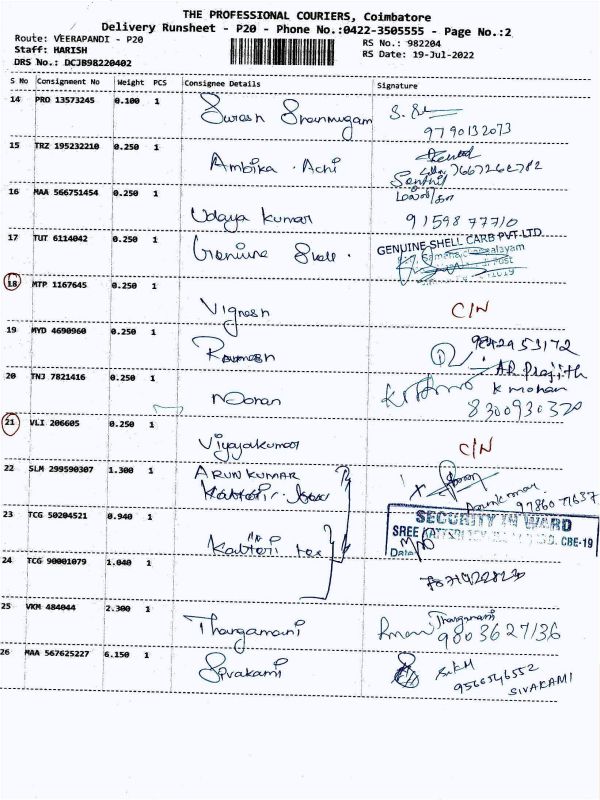 THE PROFESSIONAL COURIERS, Coimbatore
Delivery Runsheet - P20 - Phone No.:0422-3505555 - Page No.:2
Route: VEERAPANDI - P20
RS No.: 982204
Staff: HARISH
RS Date: 19-Jul-2022
DRS No.: DCJB98220402
S No Consignment No Weight PCS Consignee Details Signature
14 PRO 13573245 0.100 1 Suresh Shanmugam
9790132073
15 TRZ 195232210 0.250 1 Ambika . Achi
Senthil
16 MAA 566751454 0.250 1 Udaya kumar
91598 77710
17 TUT 6114042 0.250 1 Genuine Shell .
GENUINE SHELL CARB PVT-LTD.
18 MTP 1167645 0.250 1 Vignesh C/N
19 MYD 4690960 0.250 1
AR Prajith
20 TNJ 7821416 0.250 1
K mohan
8300930320
21 VLI 206605 0.250 1 Vijayakumar C/N
22 SLM 299590307 1.300 1 ARUN KUMAR
Arunkumar
97860 77637
23 TCG 50204521 0.940 1 Kattori tex
SECURITY IN WARD
SREE CBE-19
Date
24 TCG 90001079 1.040 1
25 VKM 484044 2.300 1 Thangamani
Thangamani
9803627136
26 MAA 567625227 6.150 1 Sivakami
9566546552
SIVAKAMI